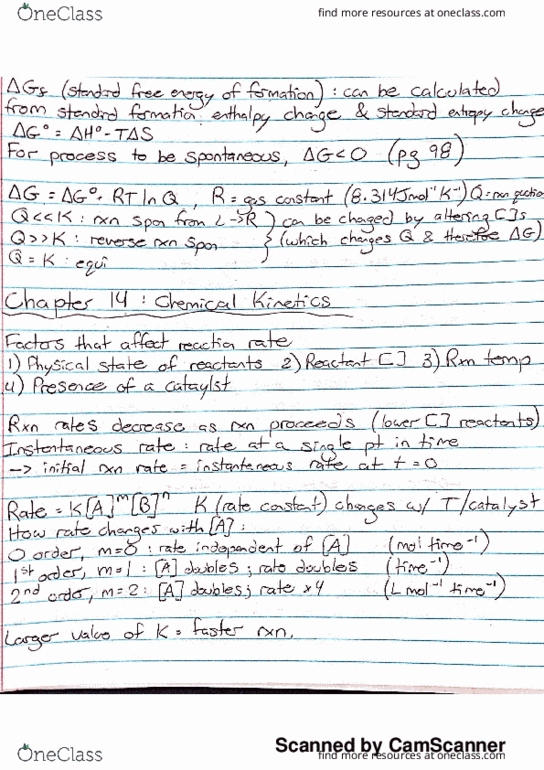 OneClass
find more resources at oneclass.com
ΔGf (standard free energy of formation) : can be calculated
from standard formation enthalpy change & standard entropy change
ΔG° = ΔH° - TΔS
For process to be spontaneous, ΔG<0 (pg 98)
ΔG = ΔG° + RT ln Q , R = gas constant (8.314 Jmol⁻¹K⁻¹) Q = rxn
Q << K : rxn spon from L → R } can be changed by altering [ ]s
Q >> K : reverse rxn spon } (which changes Q & therefore ΔG)
Q = K : equi
Chapter 14 : Chemical Kinetics
Factors that affect reaction rate
1) Physical state of reactants 2) Reactant [ ] 3) Rxn temp
4) Presence of a cataylst
Rxn rates decrease as rxn proceeds (lower [ ] reactants)
Instantaneous rate : rate at a single pt in time
→ initial rxn rate = instantaneous rate at t = 0
Rate = K[A]ᵐ[B]ⁿ K (rate constant) changes w/ T/catalyst
How rate changes with [A] :
0 order, m=0 : rate independent of [A] (mol time⁻¹)
1st order, m=1 : [A] doubles ; rate doubles (time⁻¹)
2nd order, m=2 : [A] doubles ; rate x4 (L mol⁻¹ time⁻¹)
Larger value of K = faster rxn.
Scanned by CamScanner
OneClass
find more resources at oneclass.com